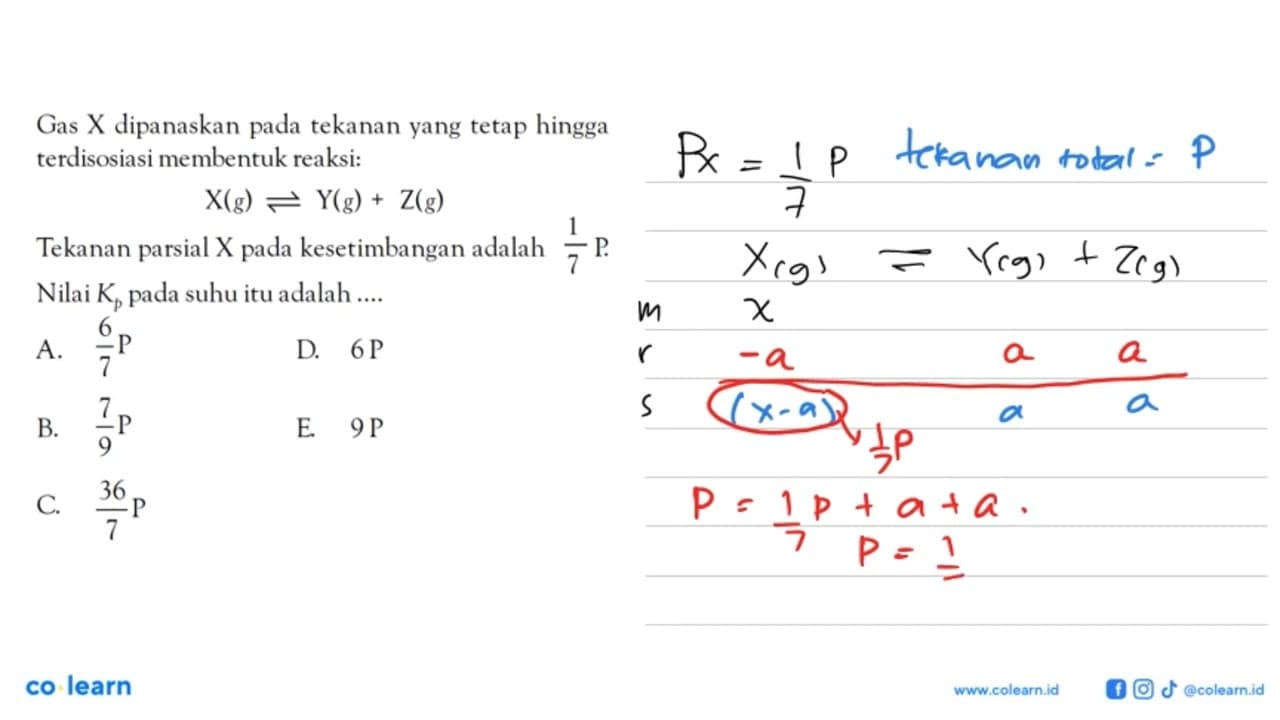 Gas X dipanaskan pada tekanan yang tetap hingga
terdisosiasi membentuk reaksi:
X(g) ⇌ Y(g) + Z(g)
Tekanan parsial X pada kesetimbangan adalah 1/7 P.
Nilai Kp pada suhu itu adalah ....
A. 6/7 P
D. 6 P
B. 7/9 P
E. 9 P
C. 36/7 P
Px = 1/7 P tekanan total = P
X(g) ⇌ Y(g) + Z(g)
m x
r -a a a
s (x-a) a a
1/7 P
P = 1/7 P + a + a.
P = 1
co learn
www.colearn.id @colearn.id